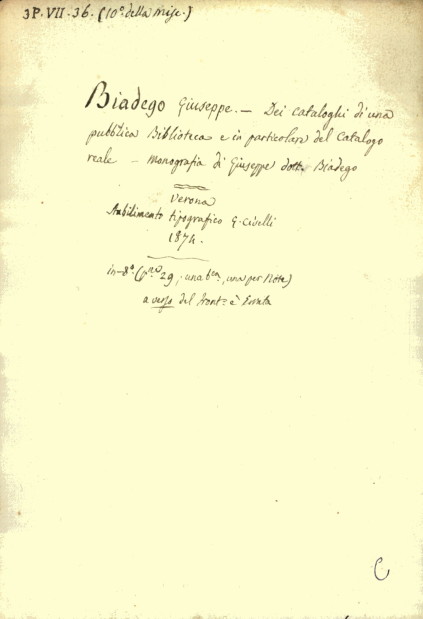 3P. VII. 36. (10° della Misc.)
Biadego Giuseppe. — Dei cataloghi di una
pubblica Biblioteca e in particolare del Catalogo
reale — Monografia di Giuseppe dott. Biadego
Verona
Stabilimento tipografico G. Civelli
1874.
in-8° (pne 29, una bca, una per Note)
a verso del front. è Errata
C